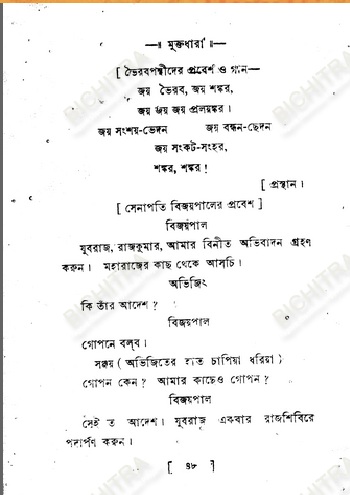 —॥ মুক্তধারা ॥—
[ ভৈরবপন্থীদের প্রবেশ ও গান—
জয় ভৈরব, জয় শঙ্কর,
জয় জয় জয় প্রলয়ঙ্কর।
জয় সংশয়-ভেদন জয় বন্ধন-ছেদন
জয় সংকট-সংহর,
শঙ্কর, শঙ্কর!
[ প্রস্থান।
[ সেনাপতি বিজয়পালের প্রবেশ ]
বিজয়পাল
যুবরাজ, রাজকুমার, আমার বিনীত অভিবাদন গ্রহণ
করুন। মহারাজের কাছ থেকে আসচি।
অভিজিৎ
কি তাঁর আদেশ?
বিজয়পাল
গোপনে বল্‌ব।
সঞ্জয় ( অভিজিতের হাত চাপিয়া ধরিয়া )
গোপন কেন? আমার কাছেও গোপন?
বিজয়পাল
সেই ত আদেশ। যুবরাজ একবার রাজশিবিরে
পদার্পণ করুন।
[ ৪৮ ]
BICHITRA
BICHITRA
BICHITRA
BICHITRA